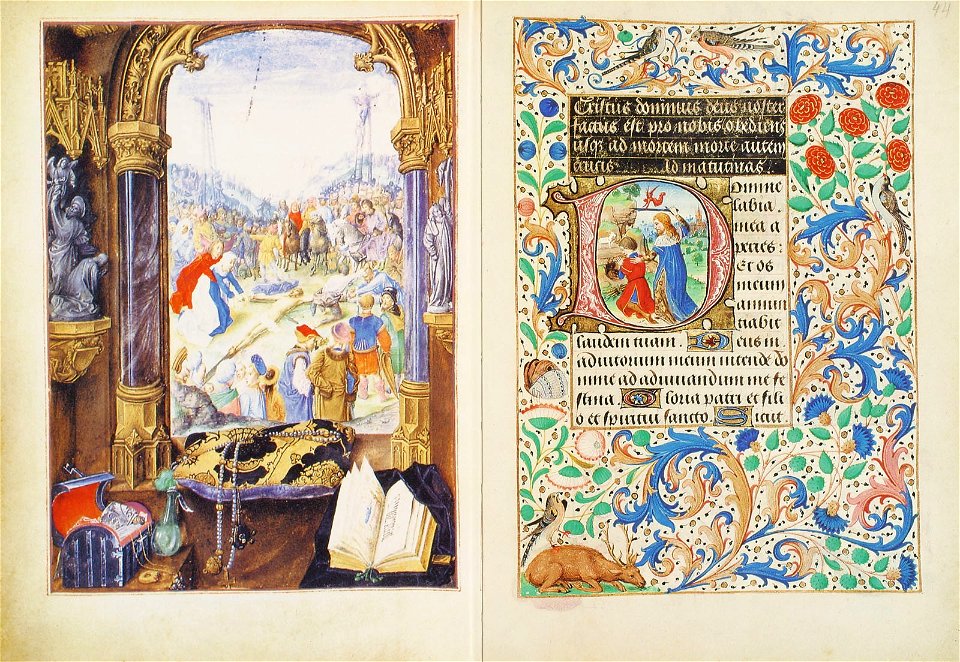 44
Cristus dominus deus noster
factus est pro nobis obediens
usqz ad mortem morte autem
crucis. Ad matutinas.
Domine
labia.
mea a
peries:
Et os
meum
annun
tiabit
laudem tuam. Deus in
adiutorium meum intende do
mine ad adiuvandum me fe
stina. Gloria patri et fili
o et spiritui sancto. Sicut